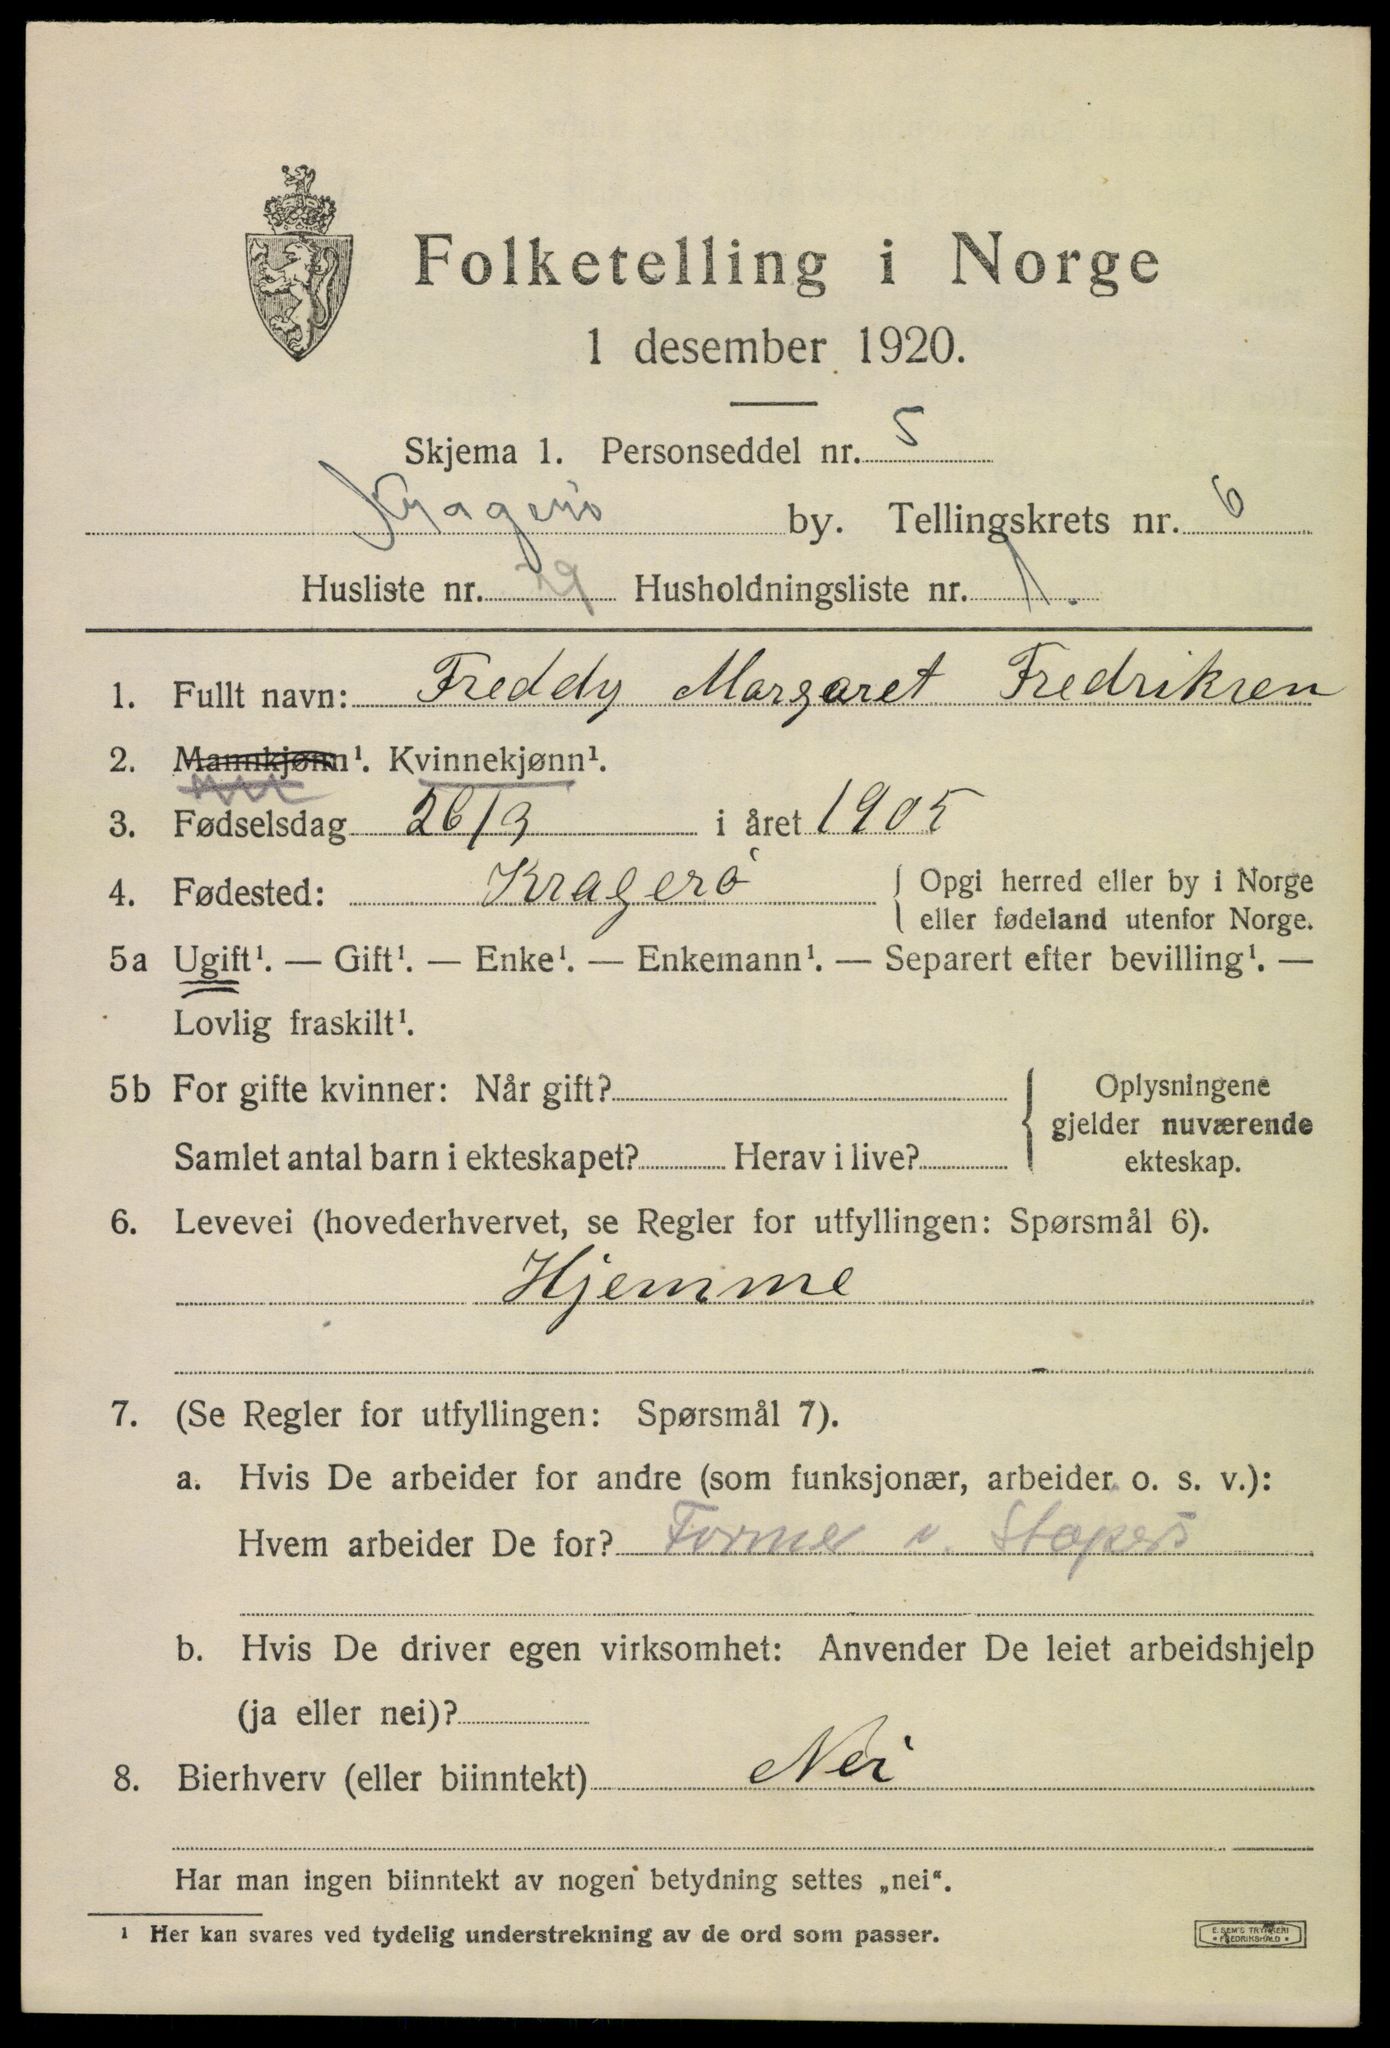 Folketelling i Norge
1 desember 1920.
Skjema 1. Personseddel nr. 5
Kragerö by. Tellingskrets nr. 6
Husliste nr. 29 Husholdningsliste nr. 1.
1. Fullt navn: Freddy Margaret Fredriksen
2. Mannkjønn¹. Kvinnekjønn¹.
3. Fødselsdag 26/3 i året 1905
4. Fødested: Kragerö { Opgi herred eller by i Norge
eller fødeland utenfor Norge.
5a Ugift¹. — Gift¹. — Enke¹. — Enkemann¹. — Separert efter bevilling¹. —
Lovlig fraskilt¹.
5b For gifte kvinner: Når gift? { Oplysningene
gjelder nuværende
Samlet antal barn i ekteskapet? Herav i live? ekteskap.
6. Levevei (hovederhvervet, se Regler for utfyllingen: Spørsmål 6).
Hjemme
7. (Se Regler for utfyllingen: Spørsmål 7).
a. Hvis De arbeider for andre (som funksjonær, arbeider o. s. v.):
Hvem arbeider De for?
b. Hvis De driver egen virksomhet: Anvender De leiet arbeidshjelp
(ja eller nei)?
8. Bierhverv (eller biinntekt) Nei
Har man ingen biinntekt av nogen betydning settes „nei“.
¹ Her kan svares ved tydelig understrekning av de ord som passer.
E. SEM'S TRYKKERI
• FREDRIKSHALD •